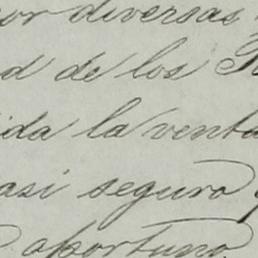 por diversas
d de los
ida la venta
asi seguro
oportuno